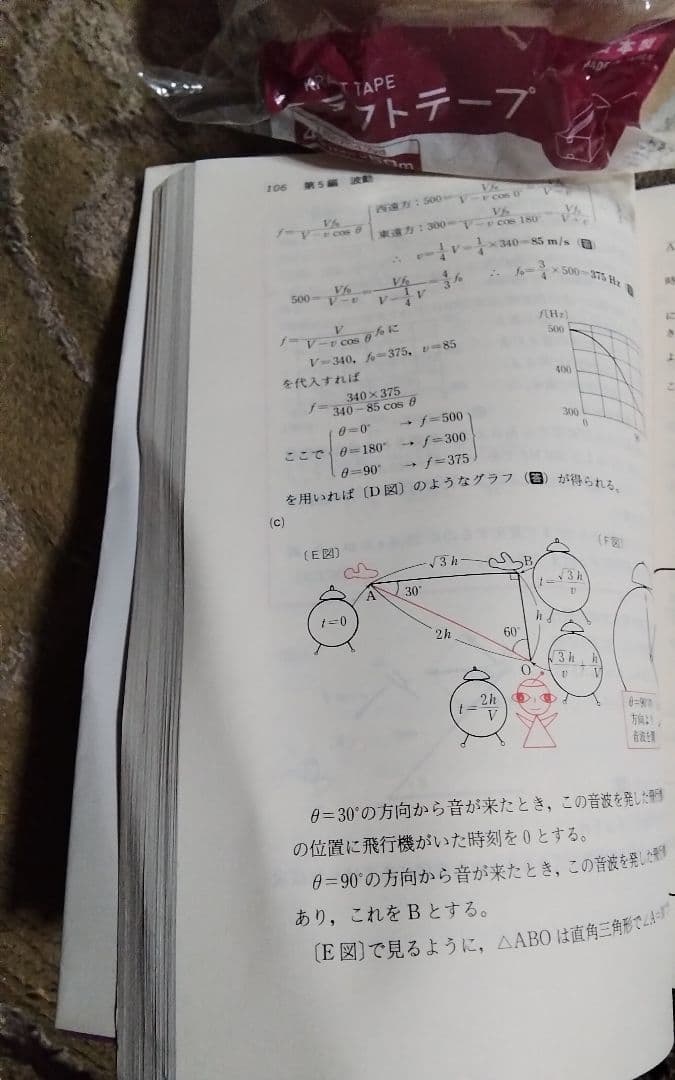 KRAFT TAPE
フトテープ
106 第5編 波動
f=Vf₀/(V-v cos θ)
西遠方:500=Vf₀/(V-v cos 0°)
東遠方:300=Vf₀/(V-v cos 180°)=Vf₀/(V+v)
∴ v=1/4 V=1/4×340=85 m/s (答)
500=Vf₀/(V-v)=Vf₀/(V-1/4 V)=4/3 f₀ ∴ f₀=3/4×500=375 Hz
f=V/(V-v cos θ) f₀ に
V=340, f₀=375, v=85
を代入すれば
f=340×375/(340-85 cos θ)
ここで
θ=0° → f=500
θ=180° → f=300
θ=90° → f=375
f(Hz)
500
400
300
0
を用いれば〔D図〕のようなグラフ(答)が得られる。
(c)
〔E図〕
〔F図〕
√3 h
A
B
30°
t=0
t=√3 h/v
h
2h
60°
O
√3 h/v+h/V
t=2h/V
θ=90°の
方向より
音波を
θ=30°の方向から音が来たとき,この音波を発した飛行
の位置に飛行機がいた時刻を0とする。
θ=90°の方向から音が来たとき,この音波を発した飛行
あり,これをBとする。
〔E図〕で見るように,△ABOは直角三角形で∠A=